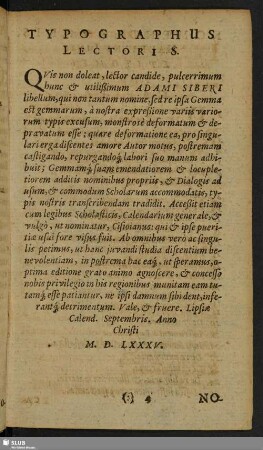 TYPOGRAPHUS
LECTORI S.
QVis non doleat, lector candide, pulcerrimum
hunc & utilissimum ADAMI SIBERI
libellum, qui non tantum nomine, sed re ipsa Gemma
est gemmarum, à nostra expressione variis vario-
rum typis excusum, monstrosè deformatum & de-
pravatum esse; quare deformatione ea, pro singu-
lari erga discentes amore Autor motus, postremam
castigando, repurgandoq́; labori suo manum adhi-
buit; Gemmamq́; suam emendatiorem & locuple-
tiorem additis nominibus propriis, & Dialogis ad
usum, & commodum Scholarum accommodatis, ty-
pis nostris transcribendam tradidit. Accessit etiam
cum legibus Scholasticis, Calendarium generale, &
vulgò, ut nominatur, Cisioianus: qui & ipse pueri-
tiæ usui fore visus fuit. Ab omnibus verò ac singu-
lis petimus, ut hanc juvandi studia discentium be-
nevolentiam, in postrema hac eaq́; ut speramus, o-
ptima editione grato animo agnoscere, & concesso
nobis privilegio in his regionibus munitam eam tu-
tamq́; esse patiantur, ne ipsi damnum sibi dent, infe-
rantq́; detrimentum. Vale, & fruere. Lipsiæ
Calend. Septembris. Anno
Christi
M. D. LXXXV.
NO-
SLUB